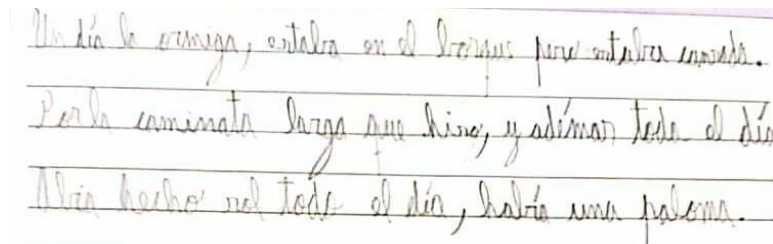 Un día la ormiga, estaba en el bosque pero estaba cansada.
Por la caminata larga que hizo, y adémas todo el día
Abia hecho sol todo el día, había una paloma.